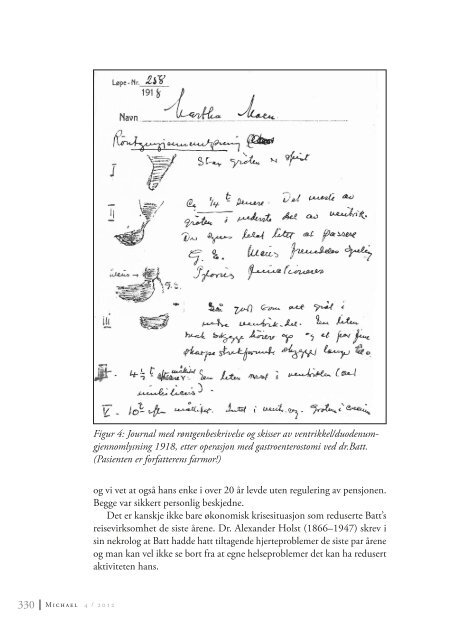 Løpe-Nr. 258
1918
Navn Martha Moen
Röntgengjennemlysning
I Straks grøten er spist
II Ca 1/4 t senere. Det meste av
grøten i nederste del av ventrik.
passere
G. E.
Pylorus
G.E.
III Så godt som all grøt i
nedre ventrik. del. En liten
skygge høiere op og et par fine
skygger langs
IIII. 4 1/2 t En liten rest i ventriklen
umbilicus).
V. 10 t efter måltidet. Intet i ventr. Grøten i
Figur 4: Journal med røntgenbeskrivelse og skisser av ventrikkel/duodenum-
gjennomlysning 1918, etter operasjon med gastroenterostomi ved dr.Batt.
(Pasienten er forfatterens farmor!)
og vi vet at også hans enke i over 20 år levde uten regulering av pensjonen.
Begge var sikkert personlig beskjedne.
Det er kanskje ikke bare økonomisk krisesituasjon som reduserte Batt's
reisevirksomhet de siste årene. Dr. Alexander Holst (1866–1947) skrev i
sin nekrolog at Batt hadde hatt tiltagende hjerteproblemer de siste par årene
og man kan vel ikke se bort fra at egne helseproblemer det kan ha redusert
aktiviteten hans.
330 | Michael 4 / 2012